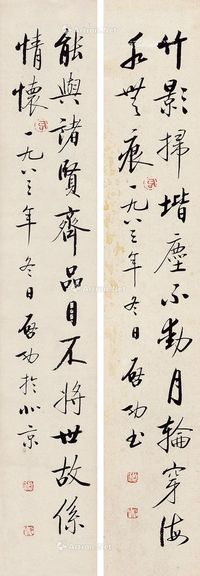 竹影掃堦塵不動月輪穿海
水無痕一九八三年冬日啟功書
能與諸賢齊品目不將世故係
情懷一九八三年冬日啟功於北京